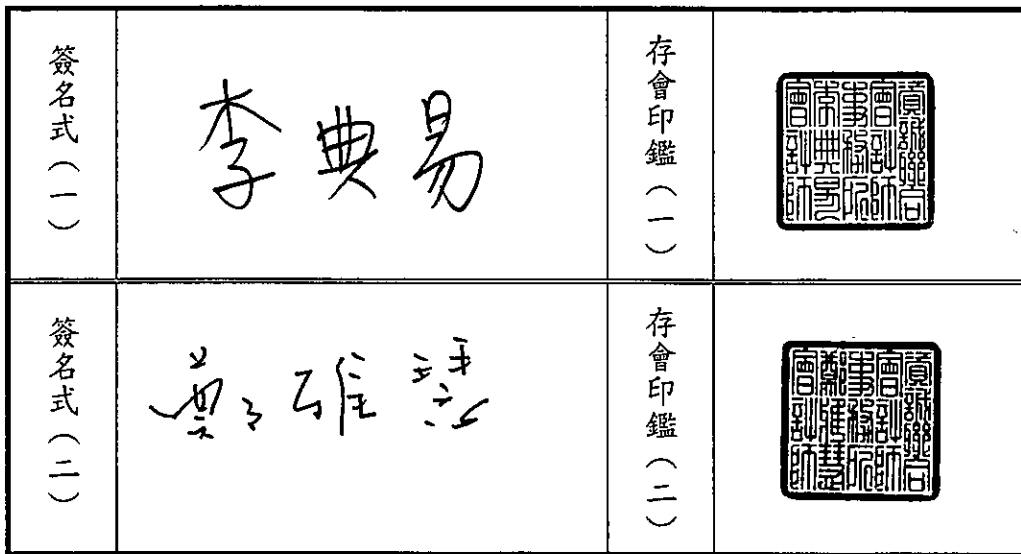 簽名式（一）
李典易
存會印鑑（一）
資誠聯合
會計師
事務所
李典易
會計師
簽名式（二）
鄭雅慧
存會印鑑（二）
資誠聯合
會計師
事務所
鄭雅慧
會計師